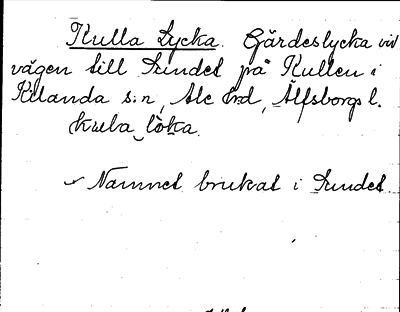 Kulla Lycka. Gärdeslycka vid
vägen till Sundet på Kullen i
Kilanda s:n, Ale hd, Älfsborgs l.
kula löka.
Namnet brukat i Sundet.